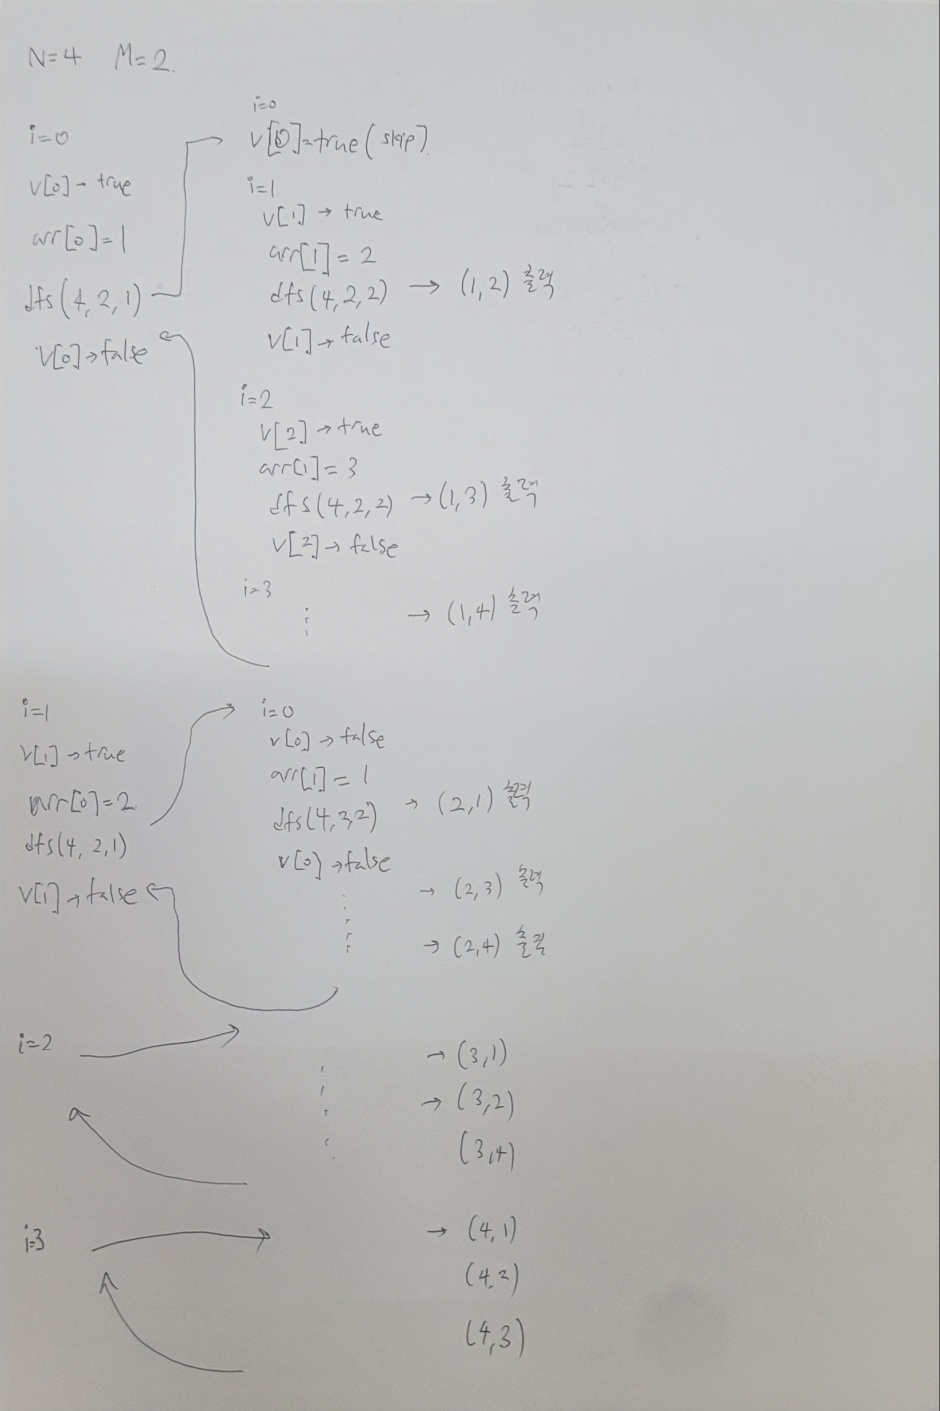 N=4 M=2.
i=0
v[0]→ true
arr[0]=1
dfs(4,2,1)
v[0]→false
i=0
v[0]=true(skip)
i=1
v[1] → true
arr[1] = 2
dfs(4,2,2) → (1,2) 출력
v[1]→ false
i=2
v[2] → true
arr[1] = 3
dfs(4,2,2) → (1,3) 출력
v[2]→ false
i=3
→ (1,4) 출력
i=1
v[1]→true
arr[0]=2
dfs(4,2,1)
v[1]→false
i=0
v[0]→ false
arr[1] = 1
dfs(4,3,2) → (2,1) 출력
v[0]→false
→ (2,3) 출력
→ (2,4) 출력
i=2
→ (3,1)
→ (3,2)
(3,4)
i=3
→ (4,1)
(4,2)
(4,3)